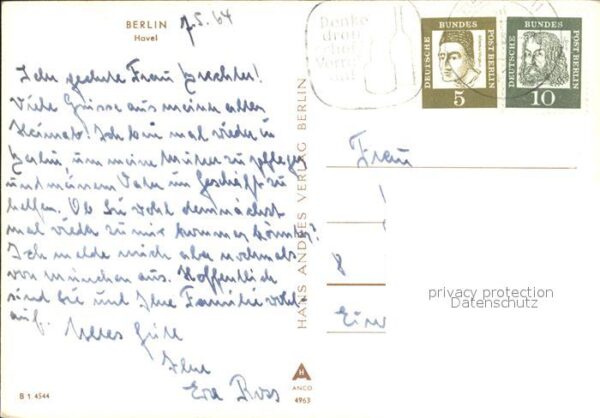 BERLIN
Havel
7.5.64
Sehr geehrte Frau
Viele Grüsse aus meiner alten
Heimat! Ich bin mal wieder in
Berlin um meine Mutter zu pflegen
und meinem Vater im Geschäft zu
helfen. Ob Sie wohl demnächst
mal wieder zu mir kommen könnten?
Ich melde mich aber nochmals
von München aus. Hoffentlich
sind Sie und Ihre Familie wohl-
auf. Alles Gute
Ihre
Eva
B 1 4544
HANS ANDRES VERLAG BERLIN
H
ANCO
4963
Denke
dran
Vorrat
DEUTSCHE BUNDES POST BERLIN
5
DEUTSCHE BUNDES POST BERLIN
10
Frau
8
privacy protection
Datenschutz